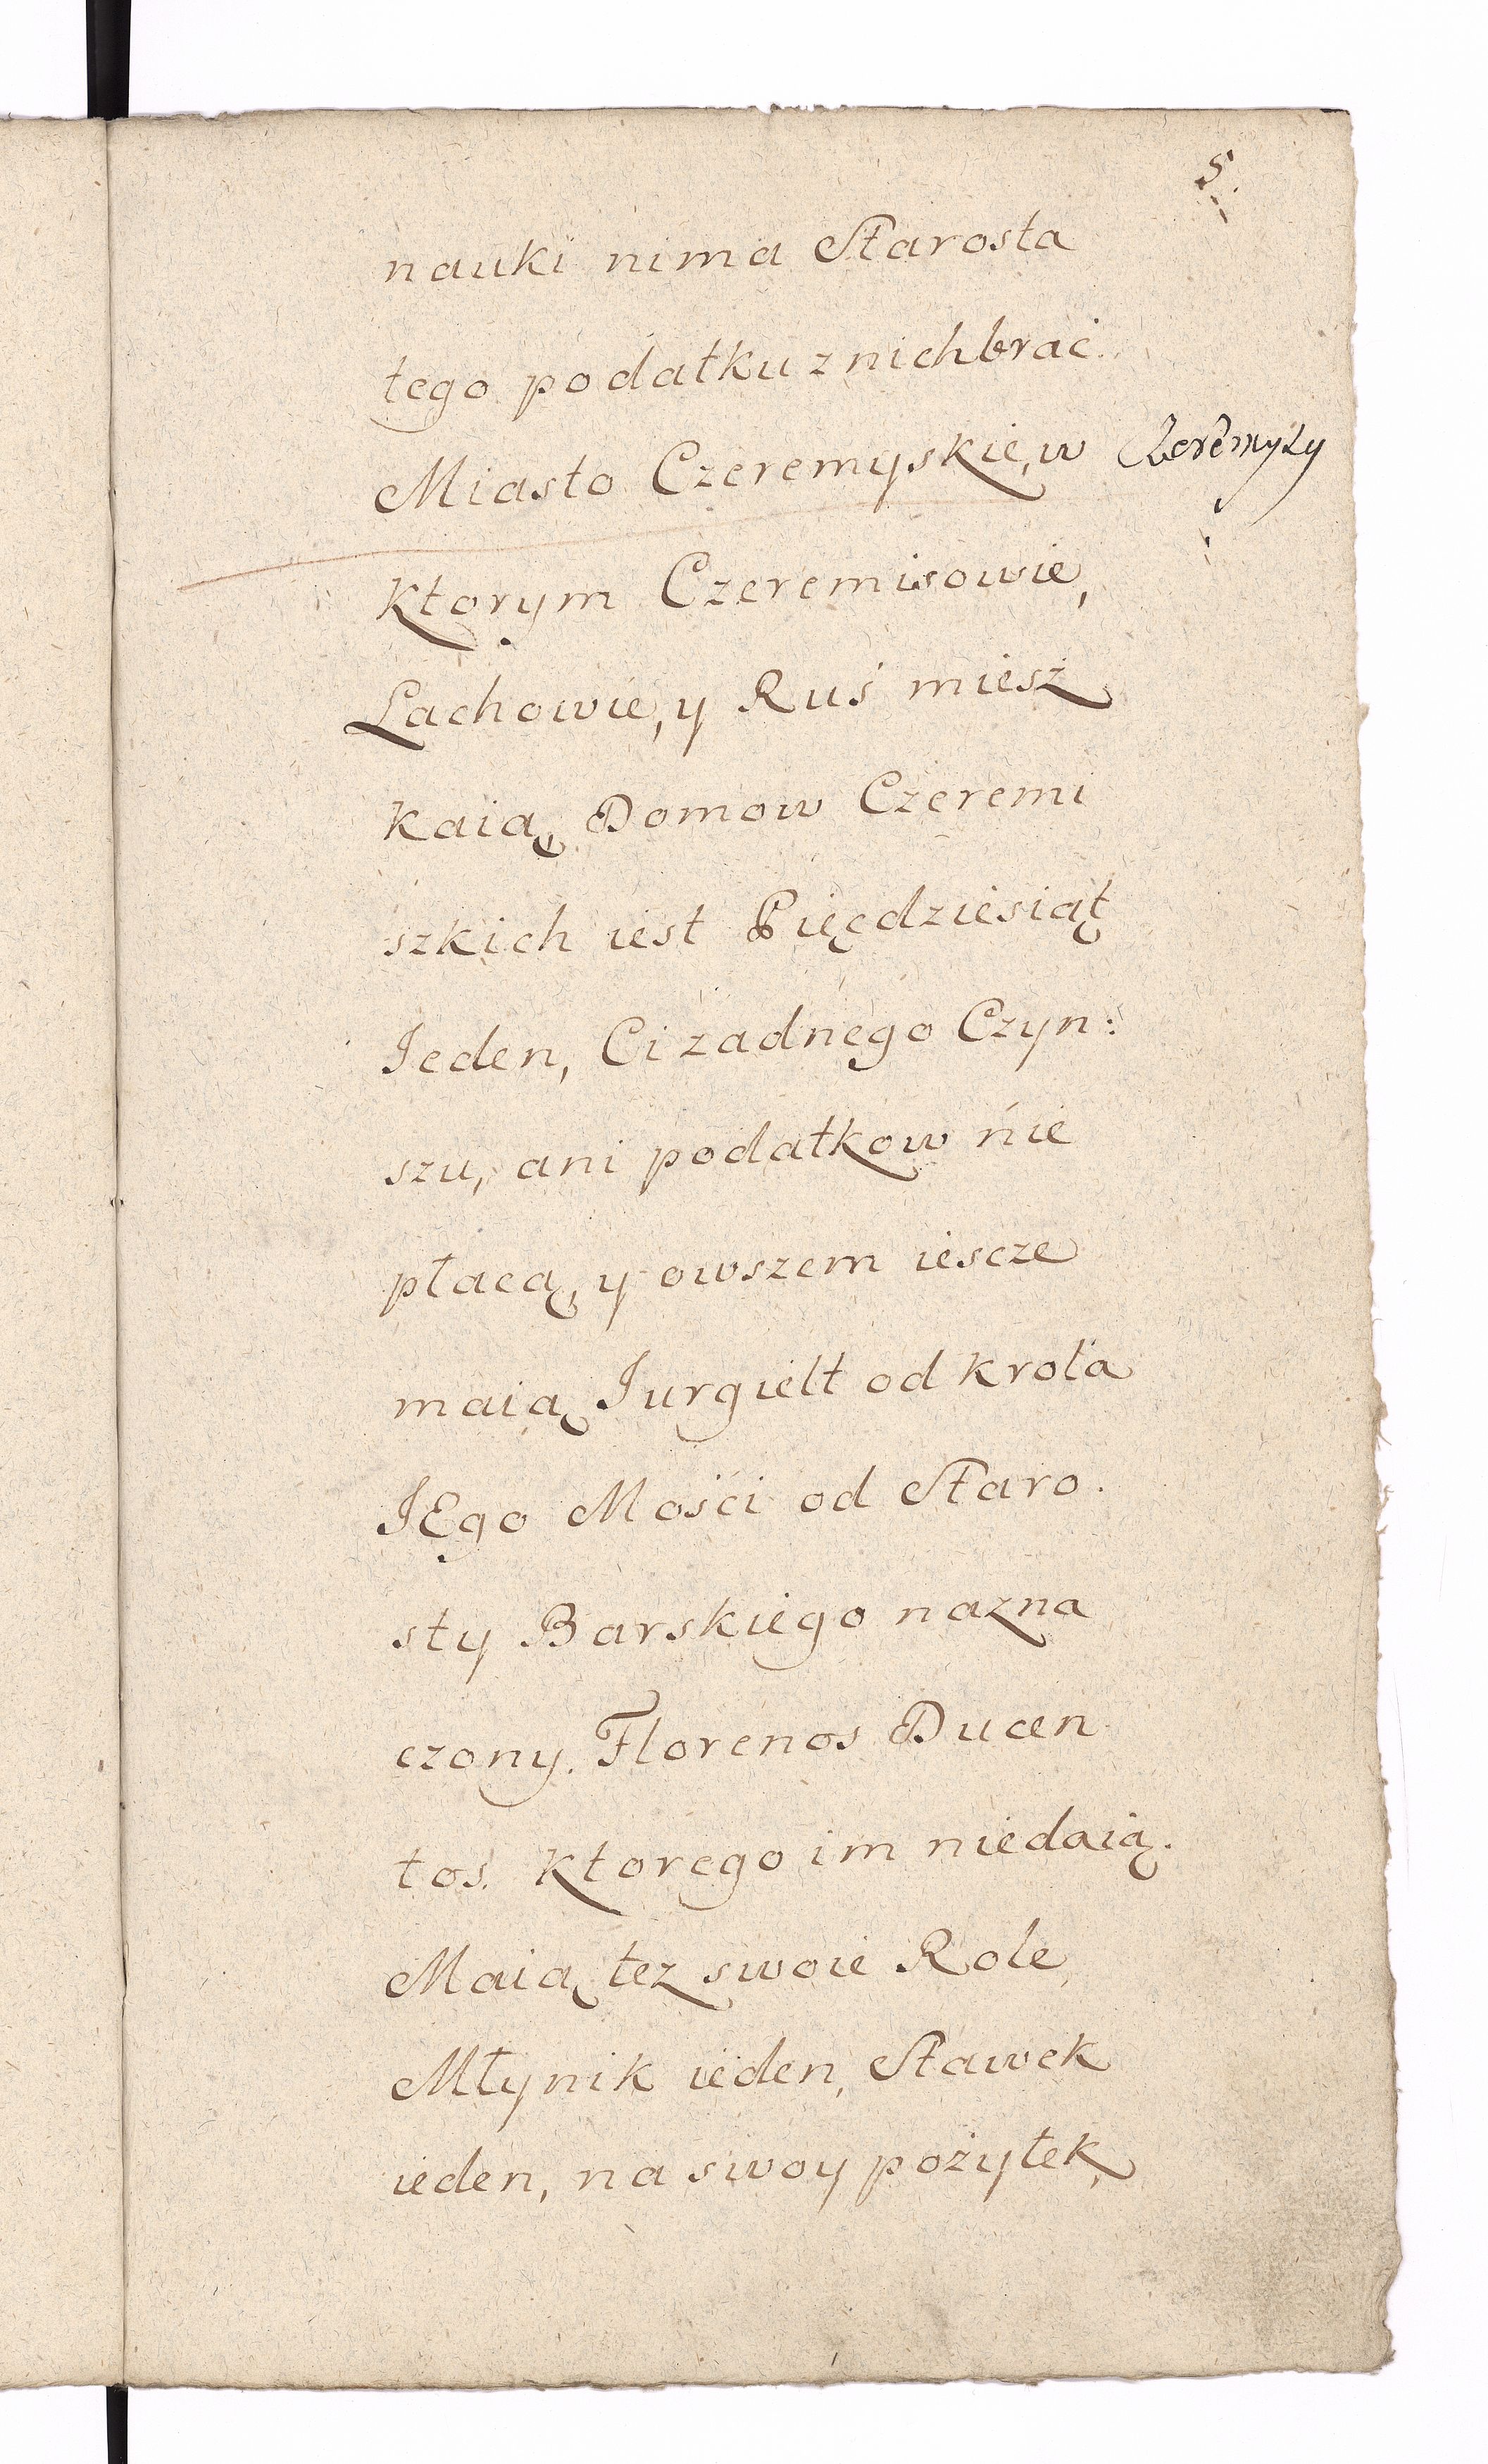 5.
nauki nima Starosta
tego podatku z nich brac.
Miasto Czeremyskie, w
Czeremysy
ktorym Czeremisowie,
Lachowie, y Ruś miesz
kaią, Domow Czeremi
szkich iest Pięcdziesiąt
Ieden, Ci zadnego Czyn:
szu, ani podatkow nie
płacą, y owszem iescze
maią Iurgielt od krola
IEgo Mości od Staro.
sty Barskiego nazna
czony. Florenos Ducen
tos. ktorego im niedaią.
Maią tez swoie Role,
Młynik ieden, Stawek
ieden, na swoy pożytek,